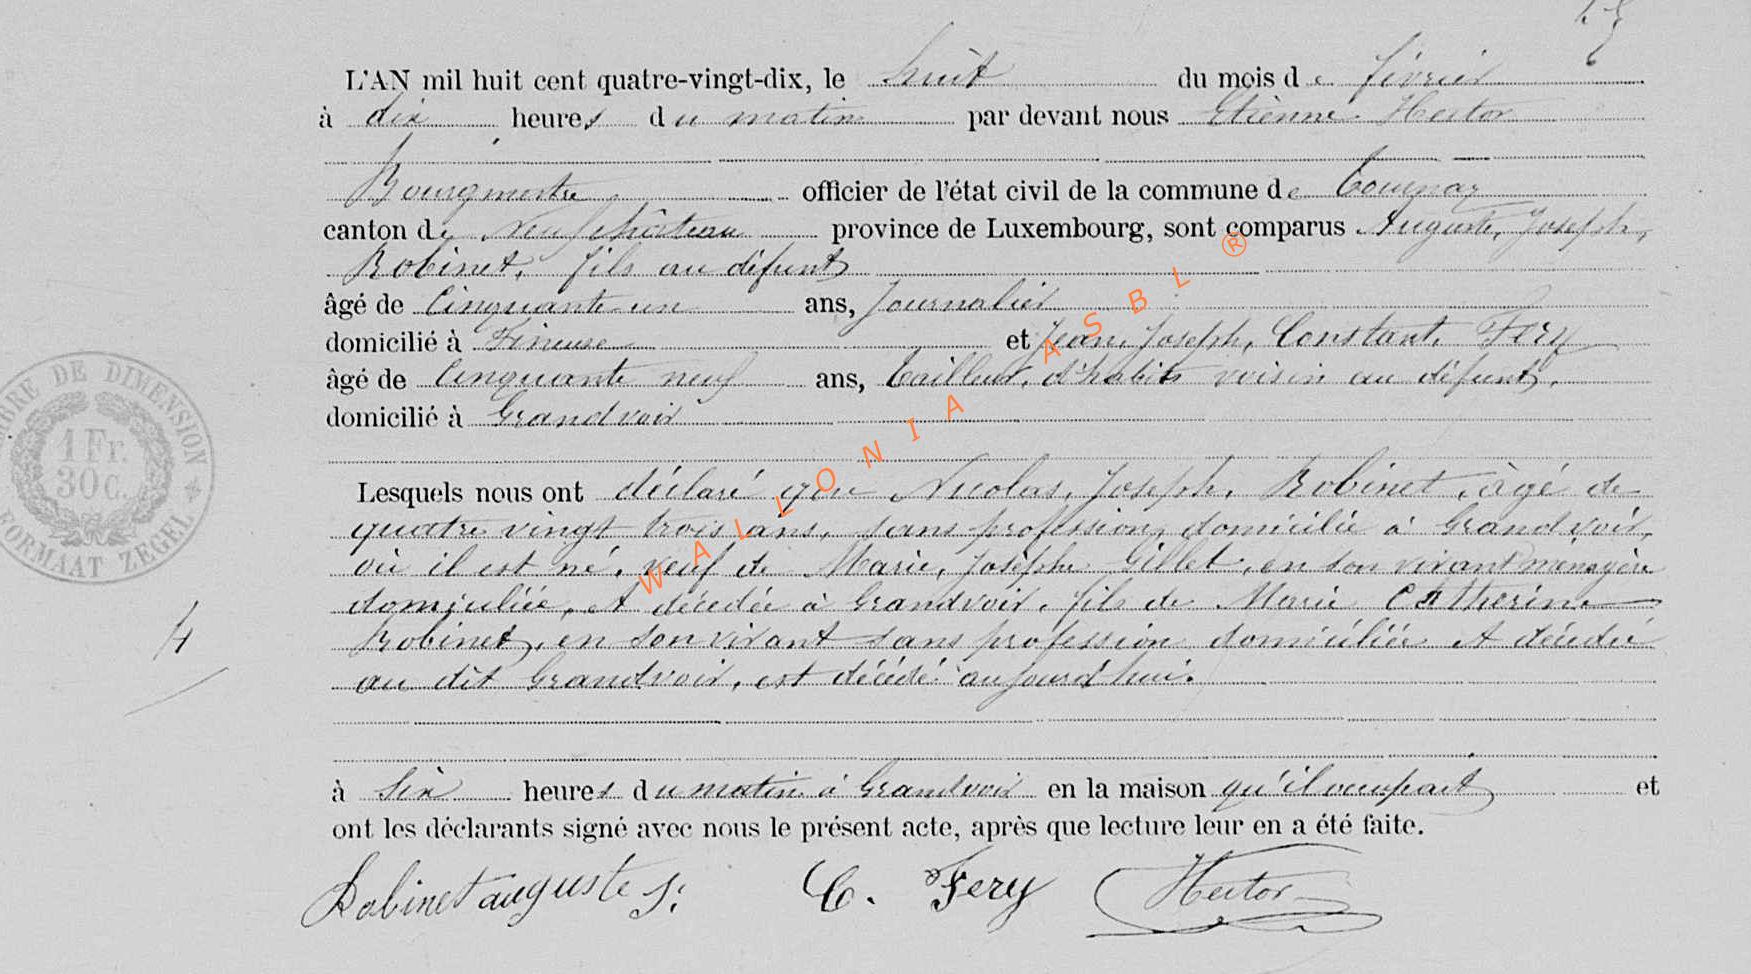 L'AN mil huit cent quatre-vingt-dix, le huit du mois de février
à dix heures du matin par devant nous Etienne Hector
Bourgmestre officier de l'état civil de la commune de Tournay
canton de Neufchâteau province de Luxembourg, sont comparus Auguste, Joseph,
Robinet, fils au défunt
âgé de Cinquante un ans, Journalier
domicilié à Fineuse et Jean, Joseph, Constant, Fery
âgé de Cinquante neuf ans, tailleur, d'habits voisin au défunt,
domicilié à Grandvoir
Lesquels nous ont déclaré que Nicolas, Joseph, Robinet, âgé de
quatre vingt trois ans, sans profession, domicilié à Grandvoir,
où il est né, veuf de Marie, Josèphe Gillet, en son vivant ménagère
domiciliée, et décédée à Grandvoir, fils de Marie Catherine
Robinet, en son vivant sans profession domiciliée et décédée
au dit Grandvoir, est décédé aujourd'hui.
à six heures du matin à Grandvoir en la maison qu'il occupait et
ont les déclarants signé avec nous le présent acte, après que lecture leur en a été faite.
Robinet auguste J. C. Fery Hector
TIMBRE DE DIMENSION
1 Fr.
30 C.
FORMAAT ZEGEL
4
WALLONIA ASBL ®